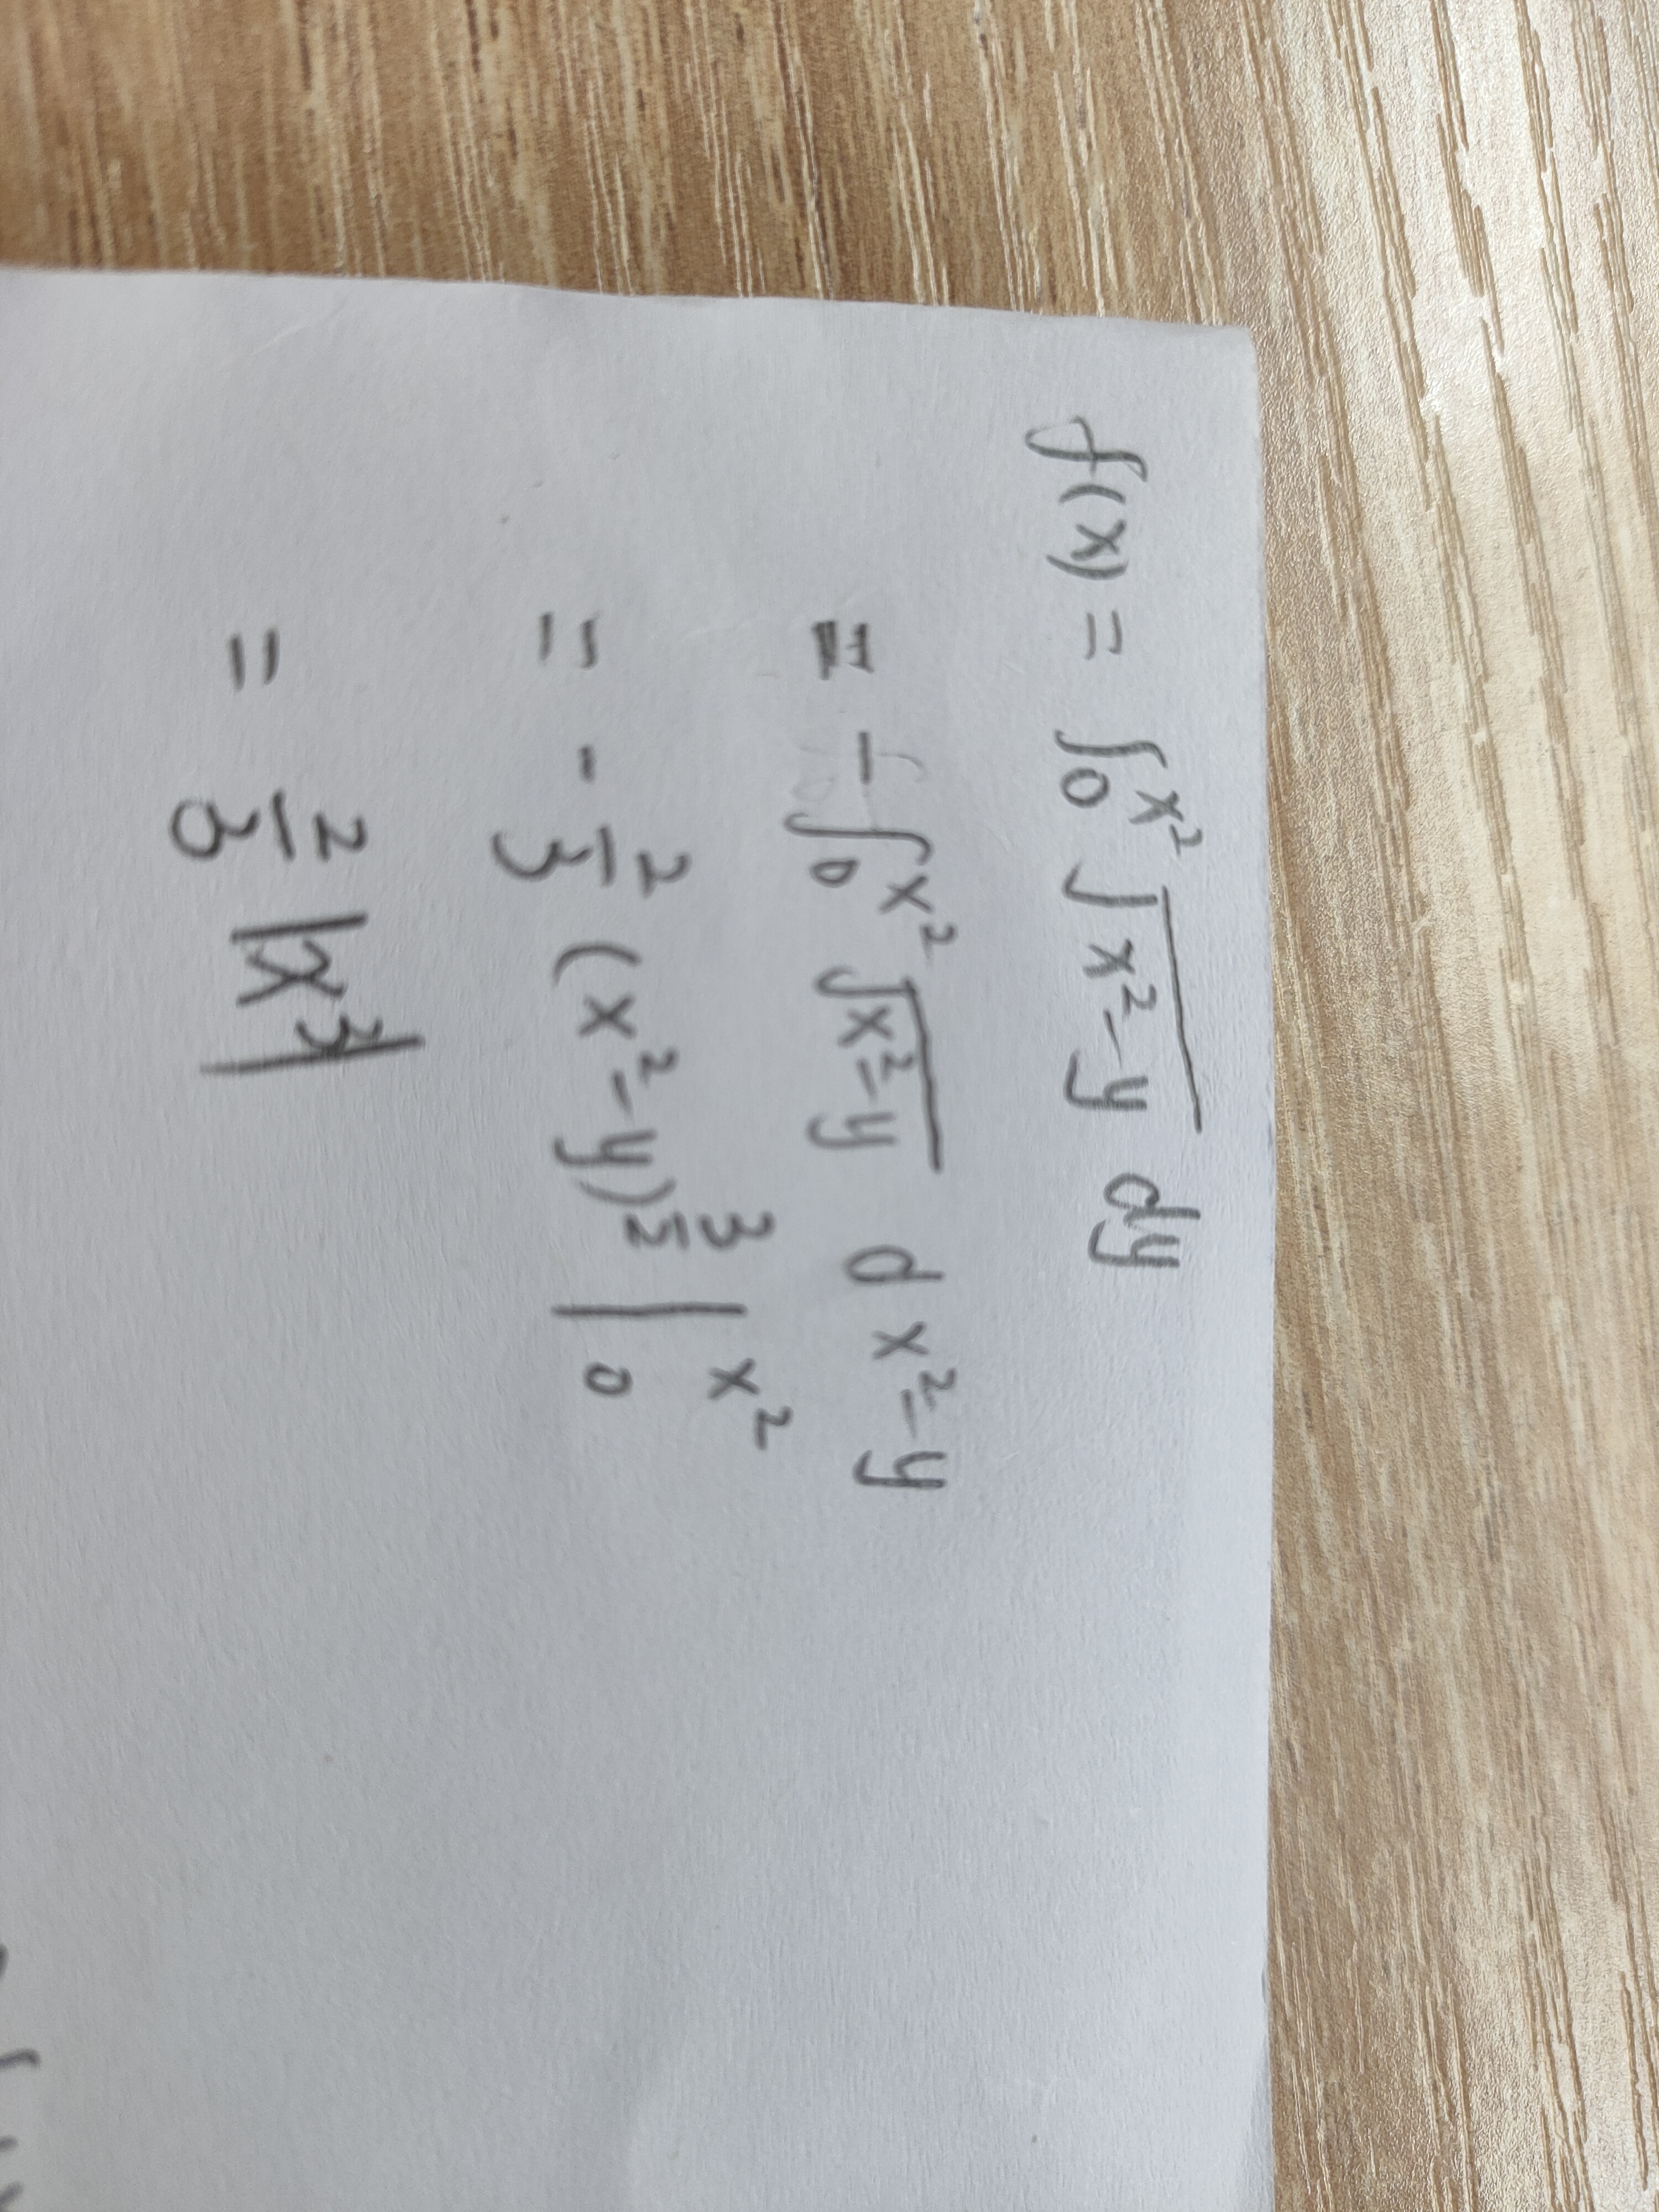 f(x) = ∫₀^{x²} √(x²-y) dy
= -∫₀^{x²} √(x²-y) d x²-y
= -2/3 (x²-y)^{3/2} |₀^{x²}
= 2/3 |x³|